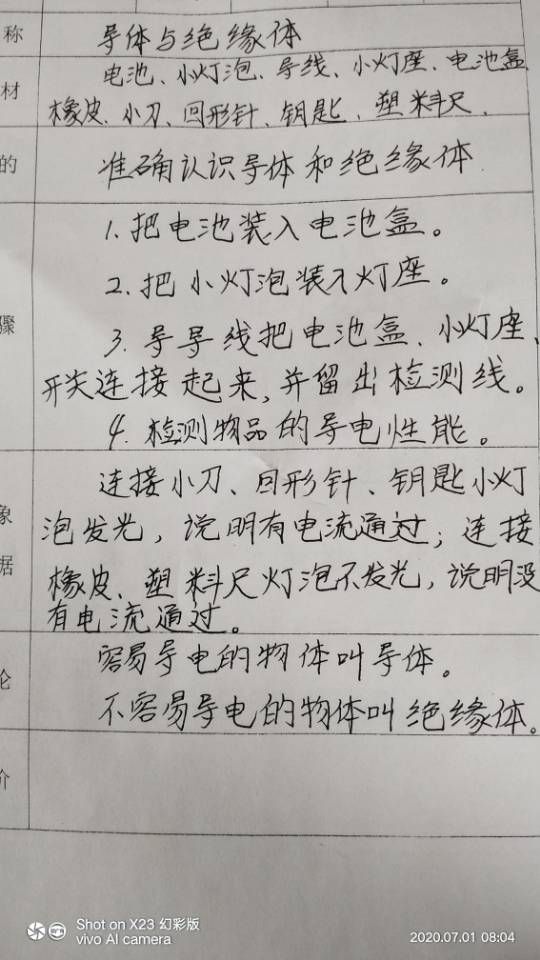 称 导体与绝缘体
电池、小灯泡、导线、小灯座、电池盒、
材 橡皮、小刀、回形针、钥匙、塑料尺、
的 准确认识导体和绝缘体
1.把电池装入电池盒。
2.把小灯泡装入灯座。
骤 3.导导线把电池盒、小灯座、
开关连接起来,并留出检测线。
4.检测物品的导电性能。
连接小刀、回形针、钥匙小灯
象 泡发光,说明有电流通过;连接
据 橡皮、塑料尺灯泡不发光,说明没
有电流通过。
论 容易导电的物体叫导体。
不容易导电的物体叫绝缘体。
价
Shot on X23 幻彩版
vivo AI camera
2020.07.01 08:04